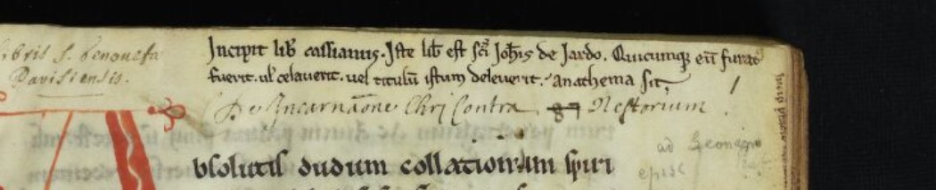 libris S. Genovefæ
Parisiensis.
Incipit lib cassianus. Iste lib est sci Iohis de Iardo. Quicumq; eu furat
fuerit. ul celauerit. uel titulu istum deleuerit. anathema sit.
1
De Incarnaone Chri Contra Nestorium
bsolutis dudum collationum spiri
ad Leonem
episc